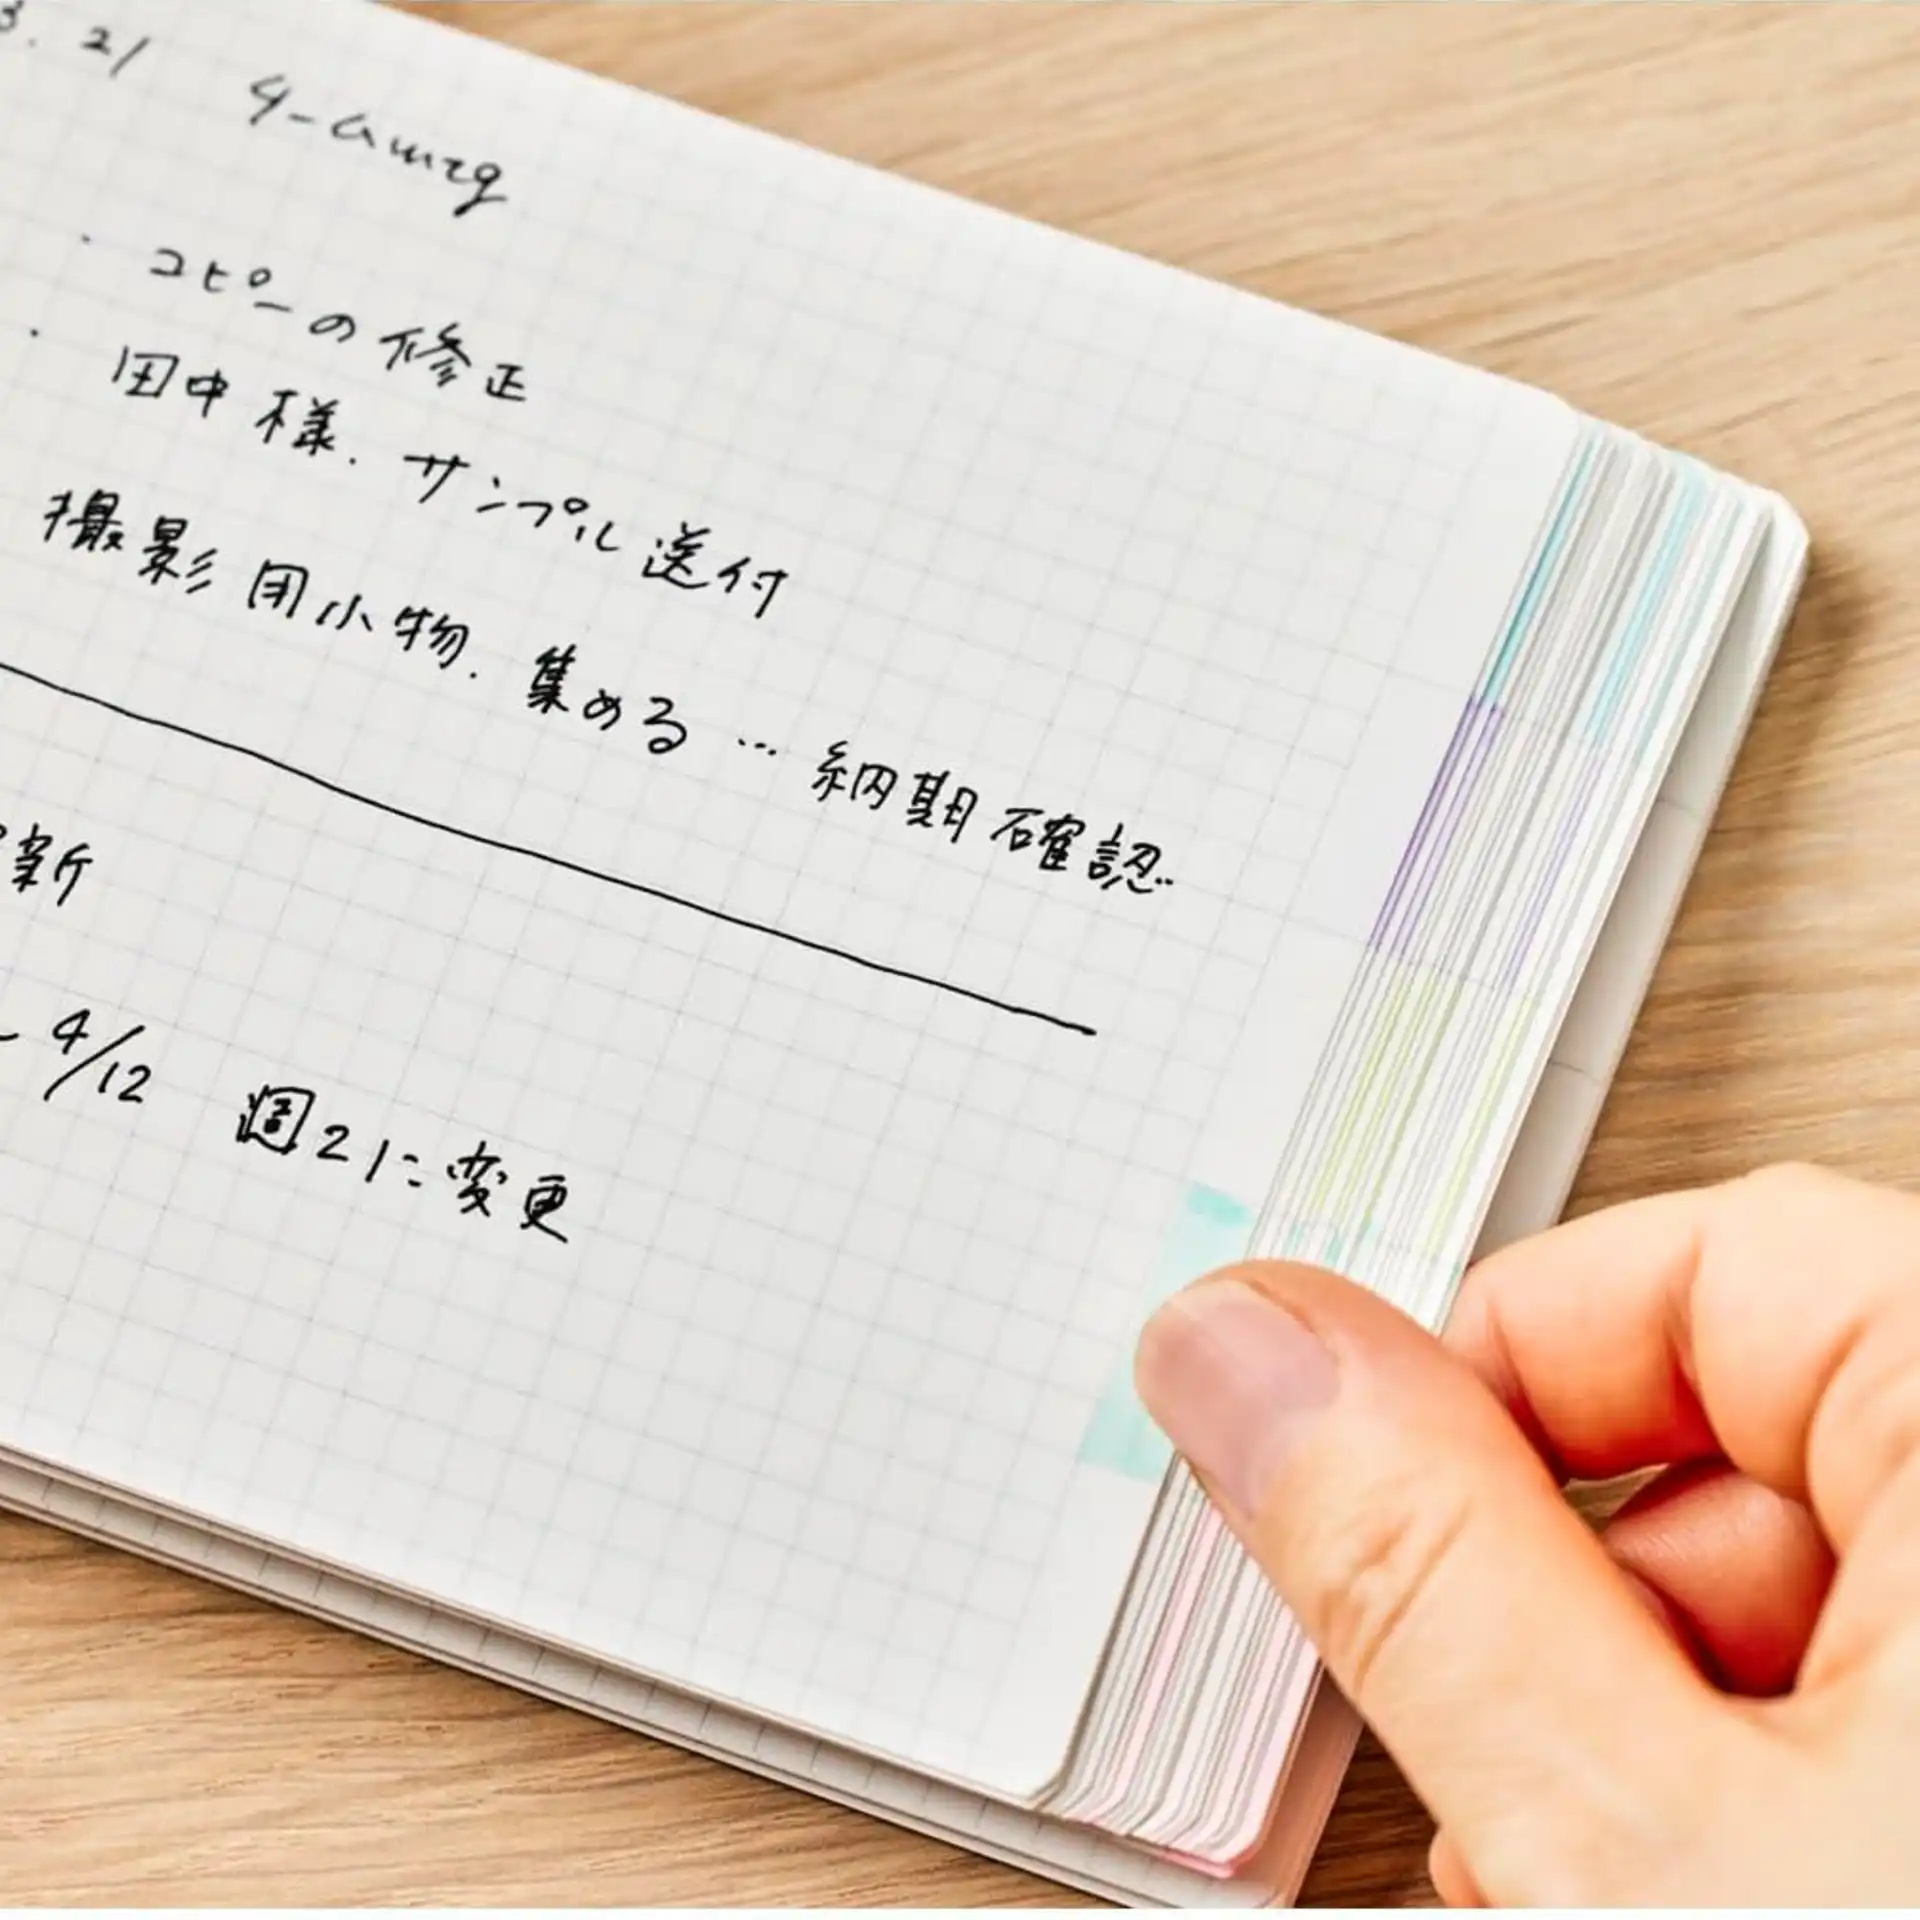 3.21 チームmtg
・コピーの修正
・田中様.サンプル送付
撮影用小物.集める…納期確認..
新
4/12 週21に変更